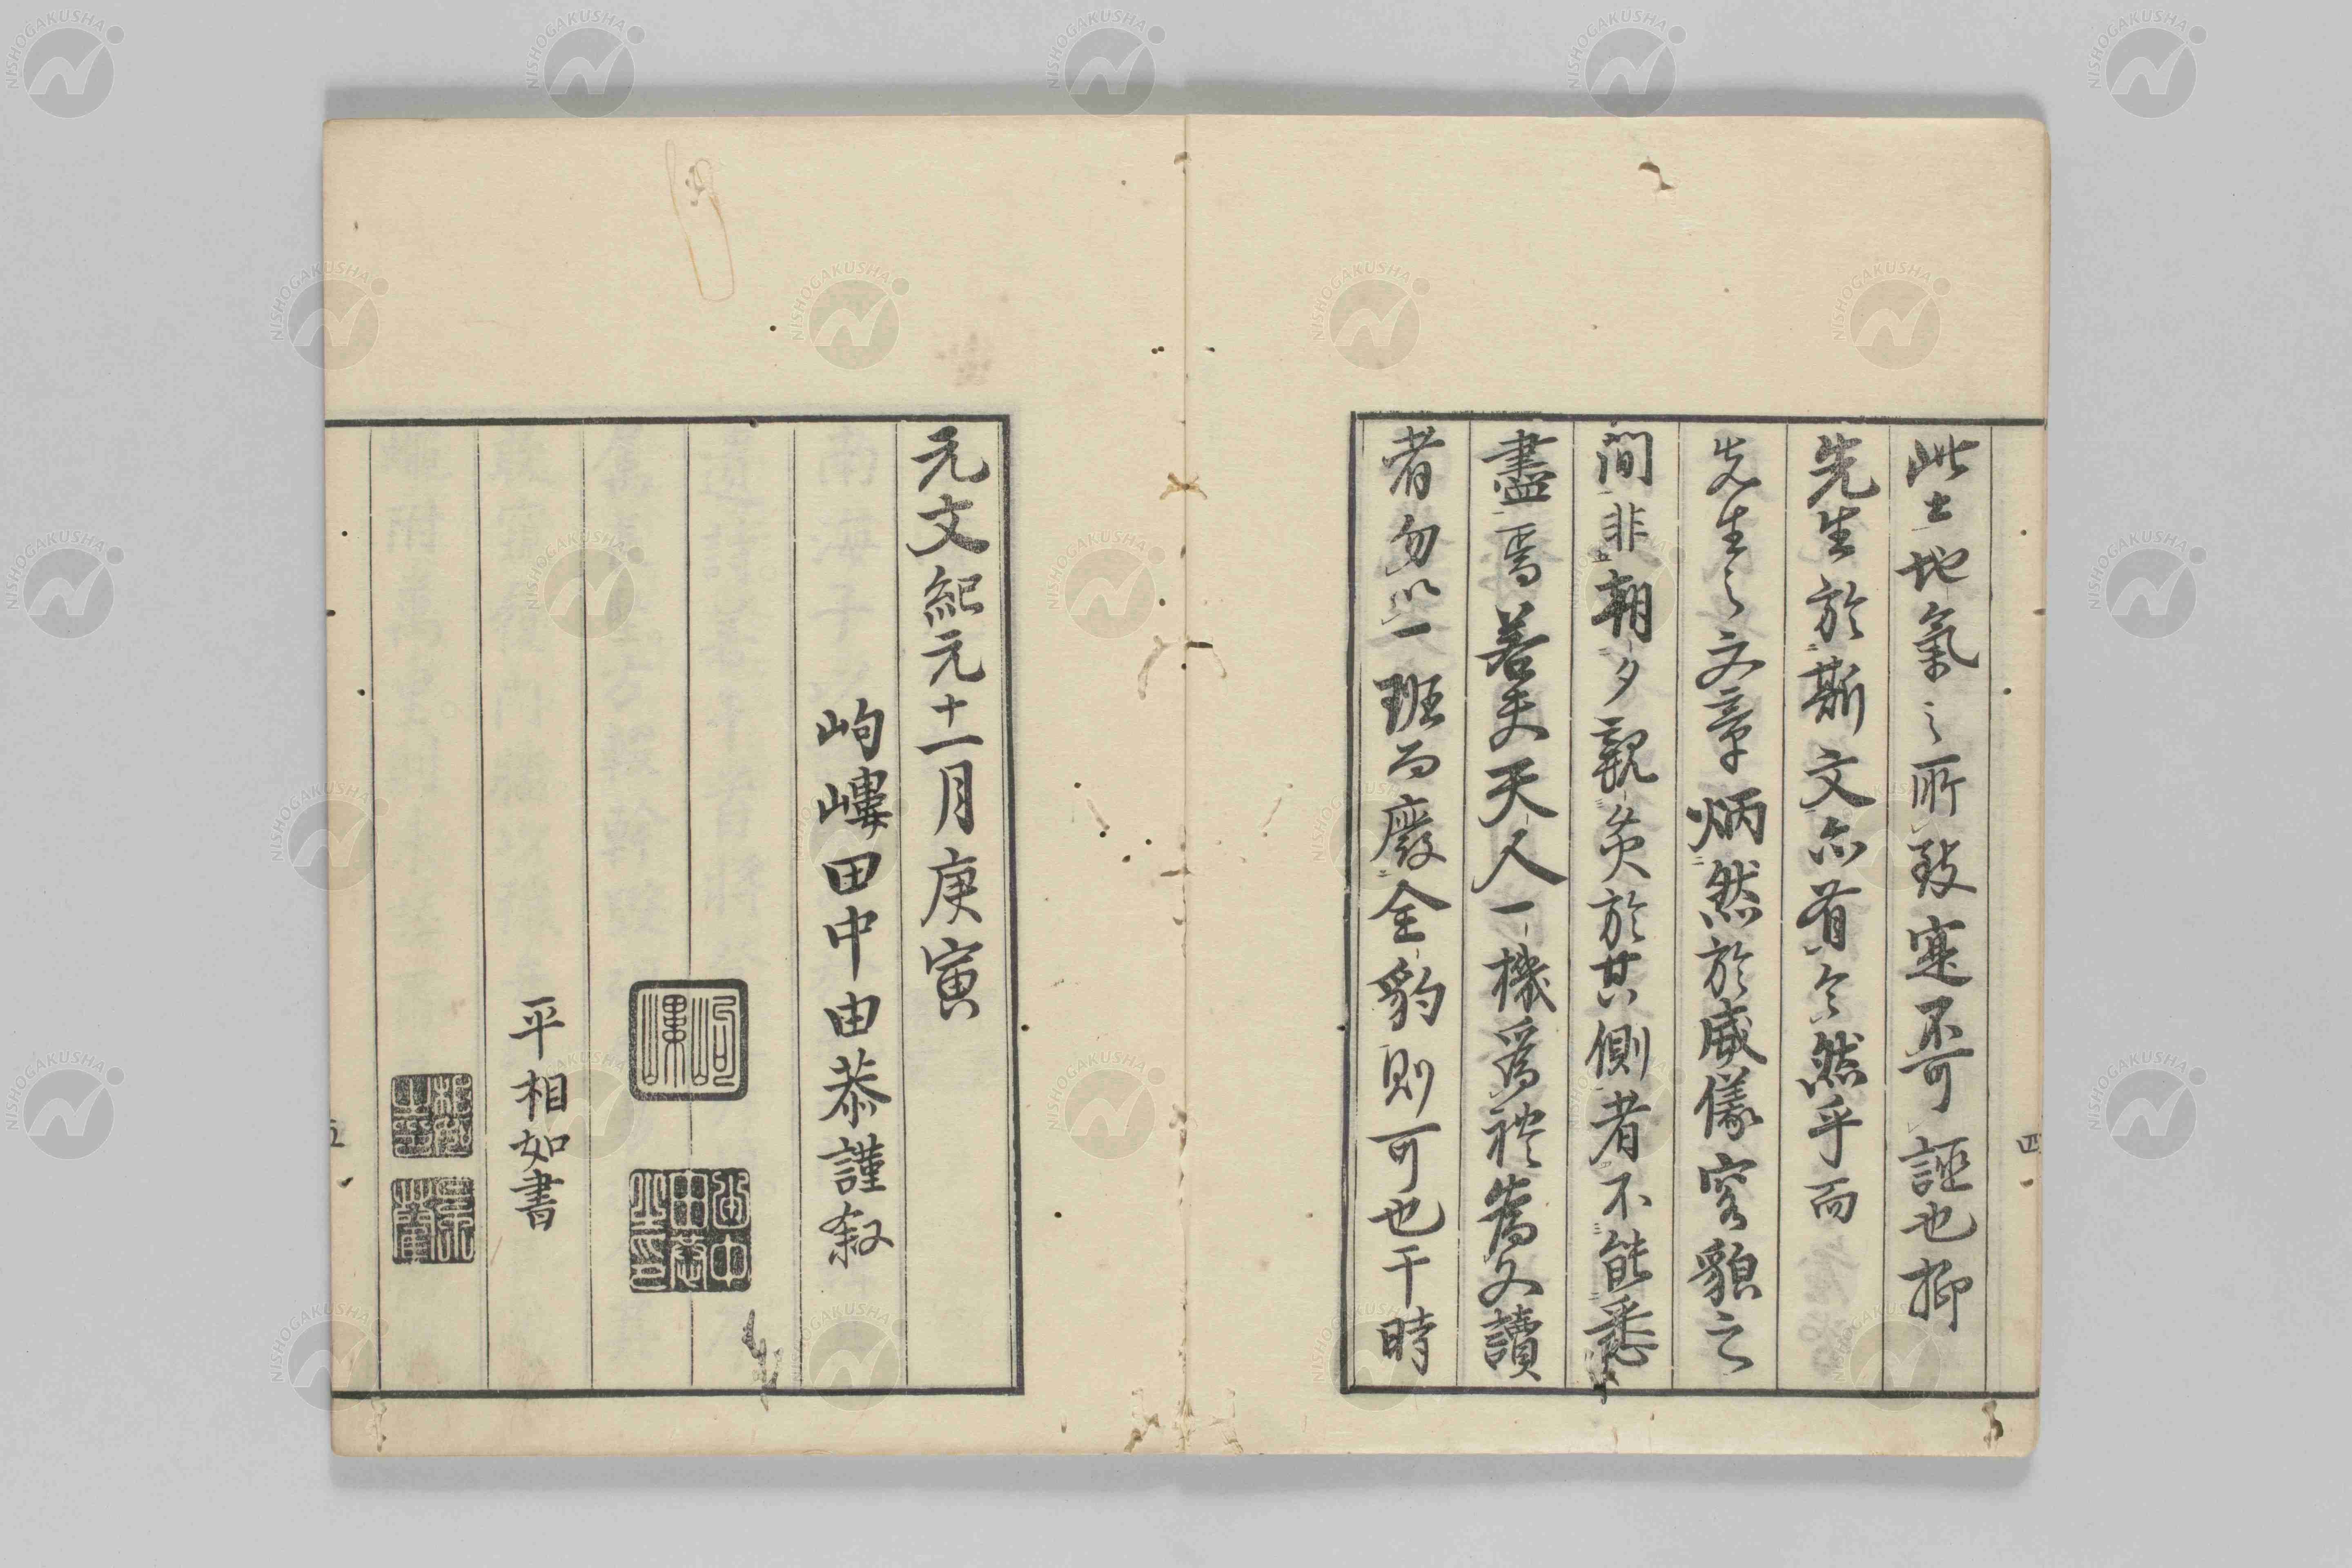 此土地氣之所致寔不可誣也抑
先生於斯文亦有今然乎而
先生之文章炳然於威儀容貌之
間非朝夕親炙於其側者不能悉
盡焉若夫天人一機爲禮爲文讀
者勿以一班而廢全豹則可也干時
四
元文紀元十一月庚寅
岣嶁田中由恭謹叙
岣嶁
田中由恭之印
平相如書
五
NISHOGAKUSHA